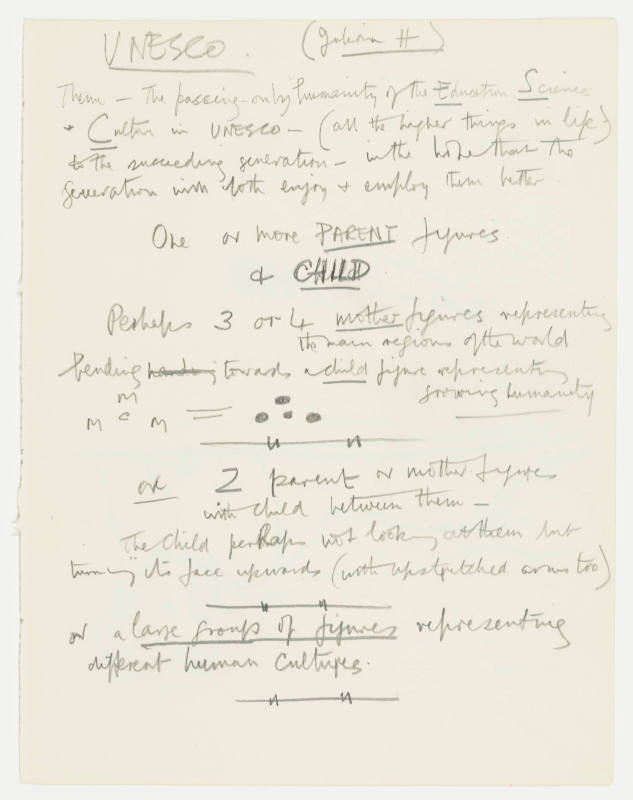 UNESCO. (Julian H)
Theme — The passing-on by humanity of the Education Science
+ Culture in UNESCO — (all the higher things in life)
to the succeeding generation — in the hope that the
generation will both enjoy + employ them better
One or more PARENT figures
& CHILD
Perhaps 3 or 4 mother figures representing
the main regions of the world
bending towards a child figure representing
growing humanity
M
M C M
or 2 parent or mother figures
with child between them —
The Child perhaps not looking at them but
turning its face upwards (with upstretched arms too)
or a large group of figures representing
different human cultures.